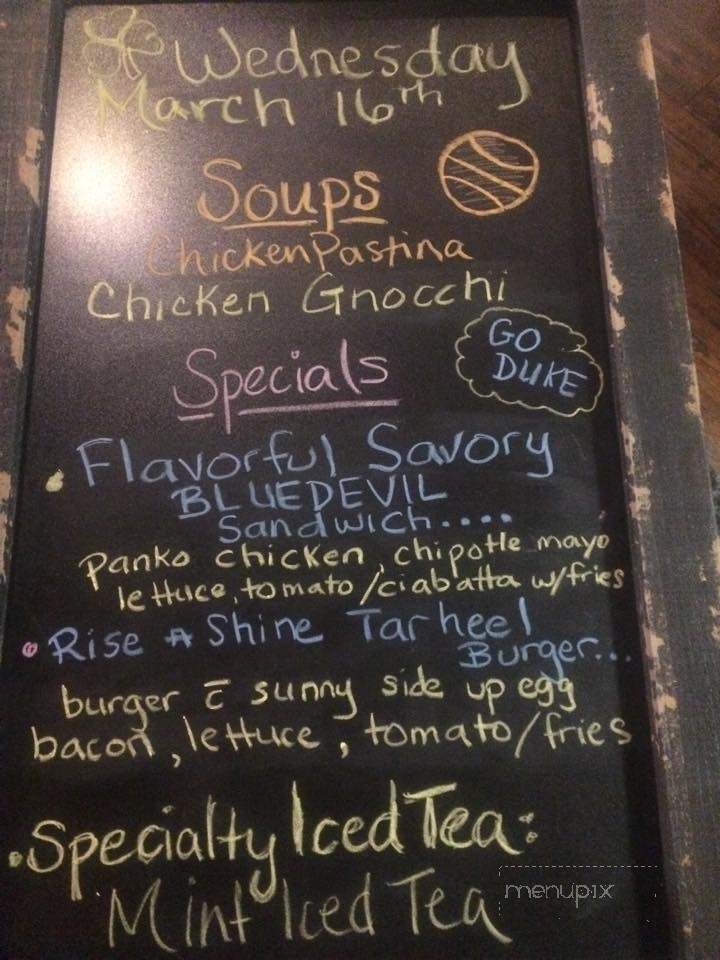 Wednesday
March 16th
Soups
Chicken Pastina
Chicken Gnocchi
GO
DUKE
Specials
• Flavorful Savory
BLUEDEVIL
Sandwich....
Panko chicken, chipotle mayo
lettuce, tomato/ciabatta w/fries
• Rise & Shine Tarheel
Burger...
burger c̄ sunny side up egg
bacon, lettuce, tomato/fries
• Specialty Iced Tea:
Mint Iced Tea
menupix